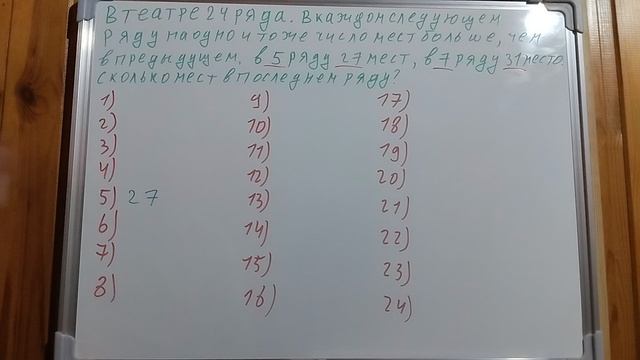 В театре 24 ряда. В каждом следующем
ряду на одно и то же число мест больше, чем
в предыдущем. в 5 ряду 27 мест, в 7 ряду 31 место.
сколько мест в последнем ряду?
1) 9) 17)
2) 10) 18)
3) 11) 19)
4) 12) 20)
5) 27 13) 21)
6) 14) 22)
7) 15) 23)
8) 16) 24)